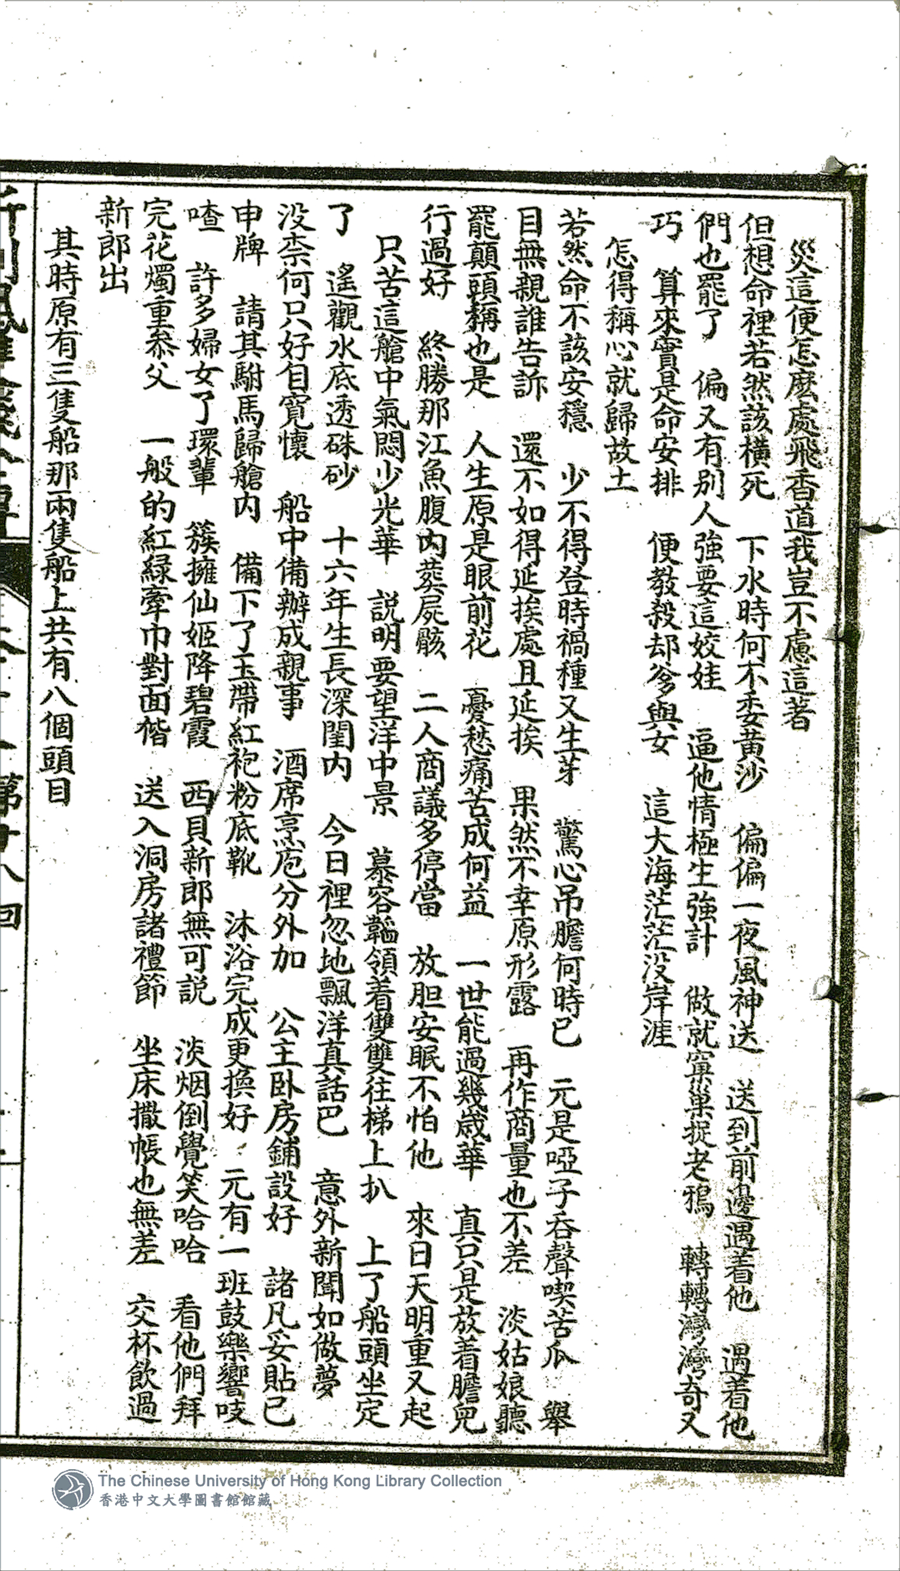 災這便怎麽處飛香道我豈不慮這著
但想命裡若然該橫死　下水時何不委黄沙　偏偏一夜風神送　送到前邊遇着他　遇着他
們也罷了　偏又有别人強要這姣娃　逼他情極生強計　做就窠巢捉老鴉　轉轉灣灣奇又
巧　算來實是命安排　便教殺却爹與女　這大海茫茫没岸涯
怎得稱心就歸故土
若然命不該安穩　少不得登時禍種又生芽　驚心吊膽何時已　元是啞子吞聲喫苦瓜　舉
目無親誰告訴　還不如得延挨處且延挨　果然不幸原形露　再作商量也不差　淡姑娘聽
罷顛頭稱也是　人生原是眼前花　憂愁痛苦成何益　一世能過幾歲華　真只是放着膽兒
行過好　終勝那江魚腹内葬屍骸　二人商議多停當　放胆安眠不怕他　來日天明重又起
只苦這艙中氣悶少光華　説明要望洋中景　慕容韜領着雙雙往梯上扒　上了船頭坐定
了　遙觀水底透硃砂　十六年生長深閨内　今日裡忽地飄洋真話巴　意外新聞如做夢
没柰何只好自寬懷　船中備辦成親事　酒席烹庖分外加　公主卧房鋪設好　諸凡妥貼已
申牌　請其駙馬歸艙内　備下了玉帶紅袍粉底靴　沐浴完成更換好　元有一班鼓樂響吱
喳　許多婦女了環輩　簇擁仙姬降碧霞　西貝新郎無可説　淡烟倒覺笑哈哈　看他們拜
完花燭重叅父　一般的紅緑牽巾對面偕　送入洞房諸禮節　坐床撒帳也無差　交杯飲過
新郎出
其時原有三隻船那兩隻船上共有八個頭目
第十八回
The Chinese University of Hong Kong Library Collection
香港中文大學圖書館館藏